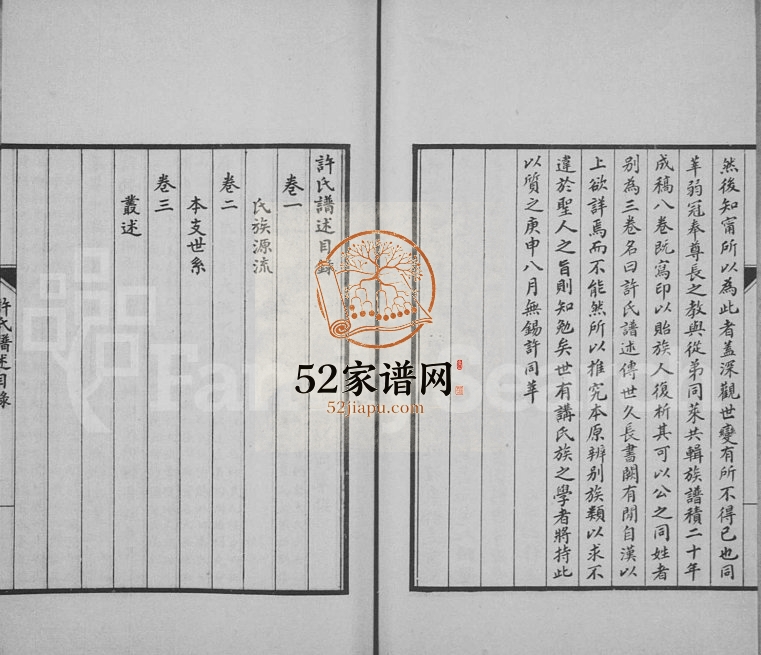 然後知甯所以為此者蓋深觀世變有所不得已也同
莘弱冠奉尊長之教與從弟同萊共輯族譜積二十年
成稿八卷既寫印以貽族人復析其可以公之同姓者
別為三卷名曰許氏譜述傳世久長書闕有閒自漢以
上欲詳焉而不能然所以推究本原辨别族類以求不
違於聖人之旨則知勉矣世有講氏族之學者將持此
以質之庚申八月無錫許同莘
許氏譜述目錄
卷一
氏族源流
卷二
本支世系
卷三
叢述
許氏譜述目錄
52家谱网
52jiapu.com